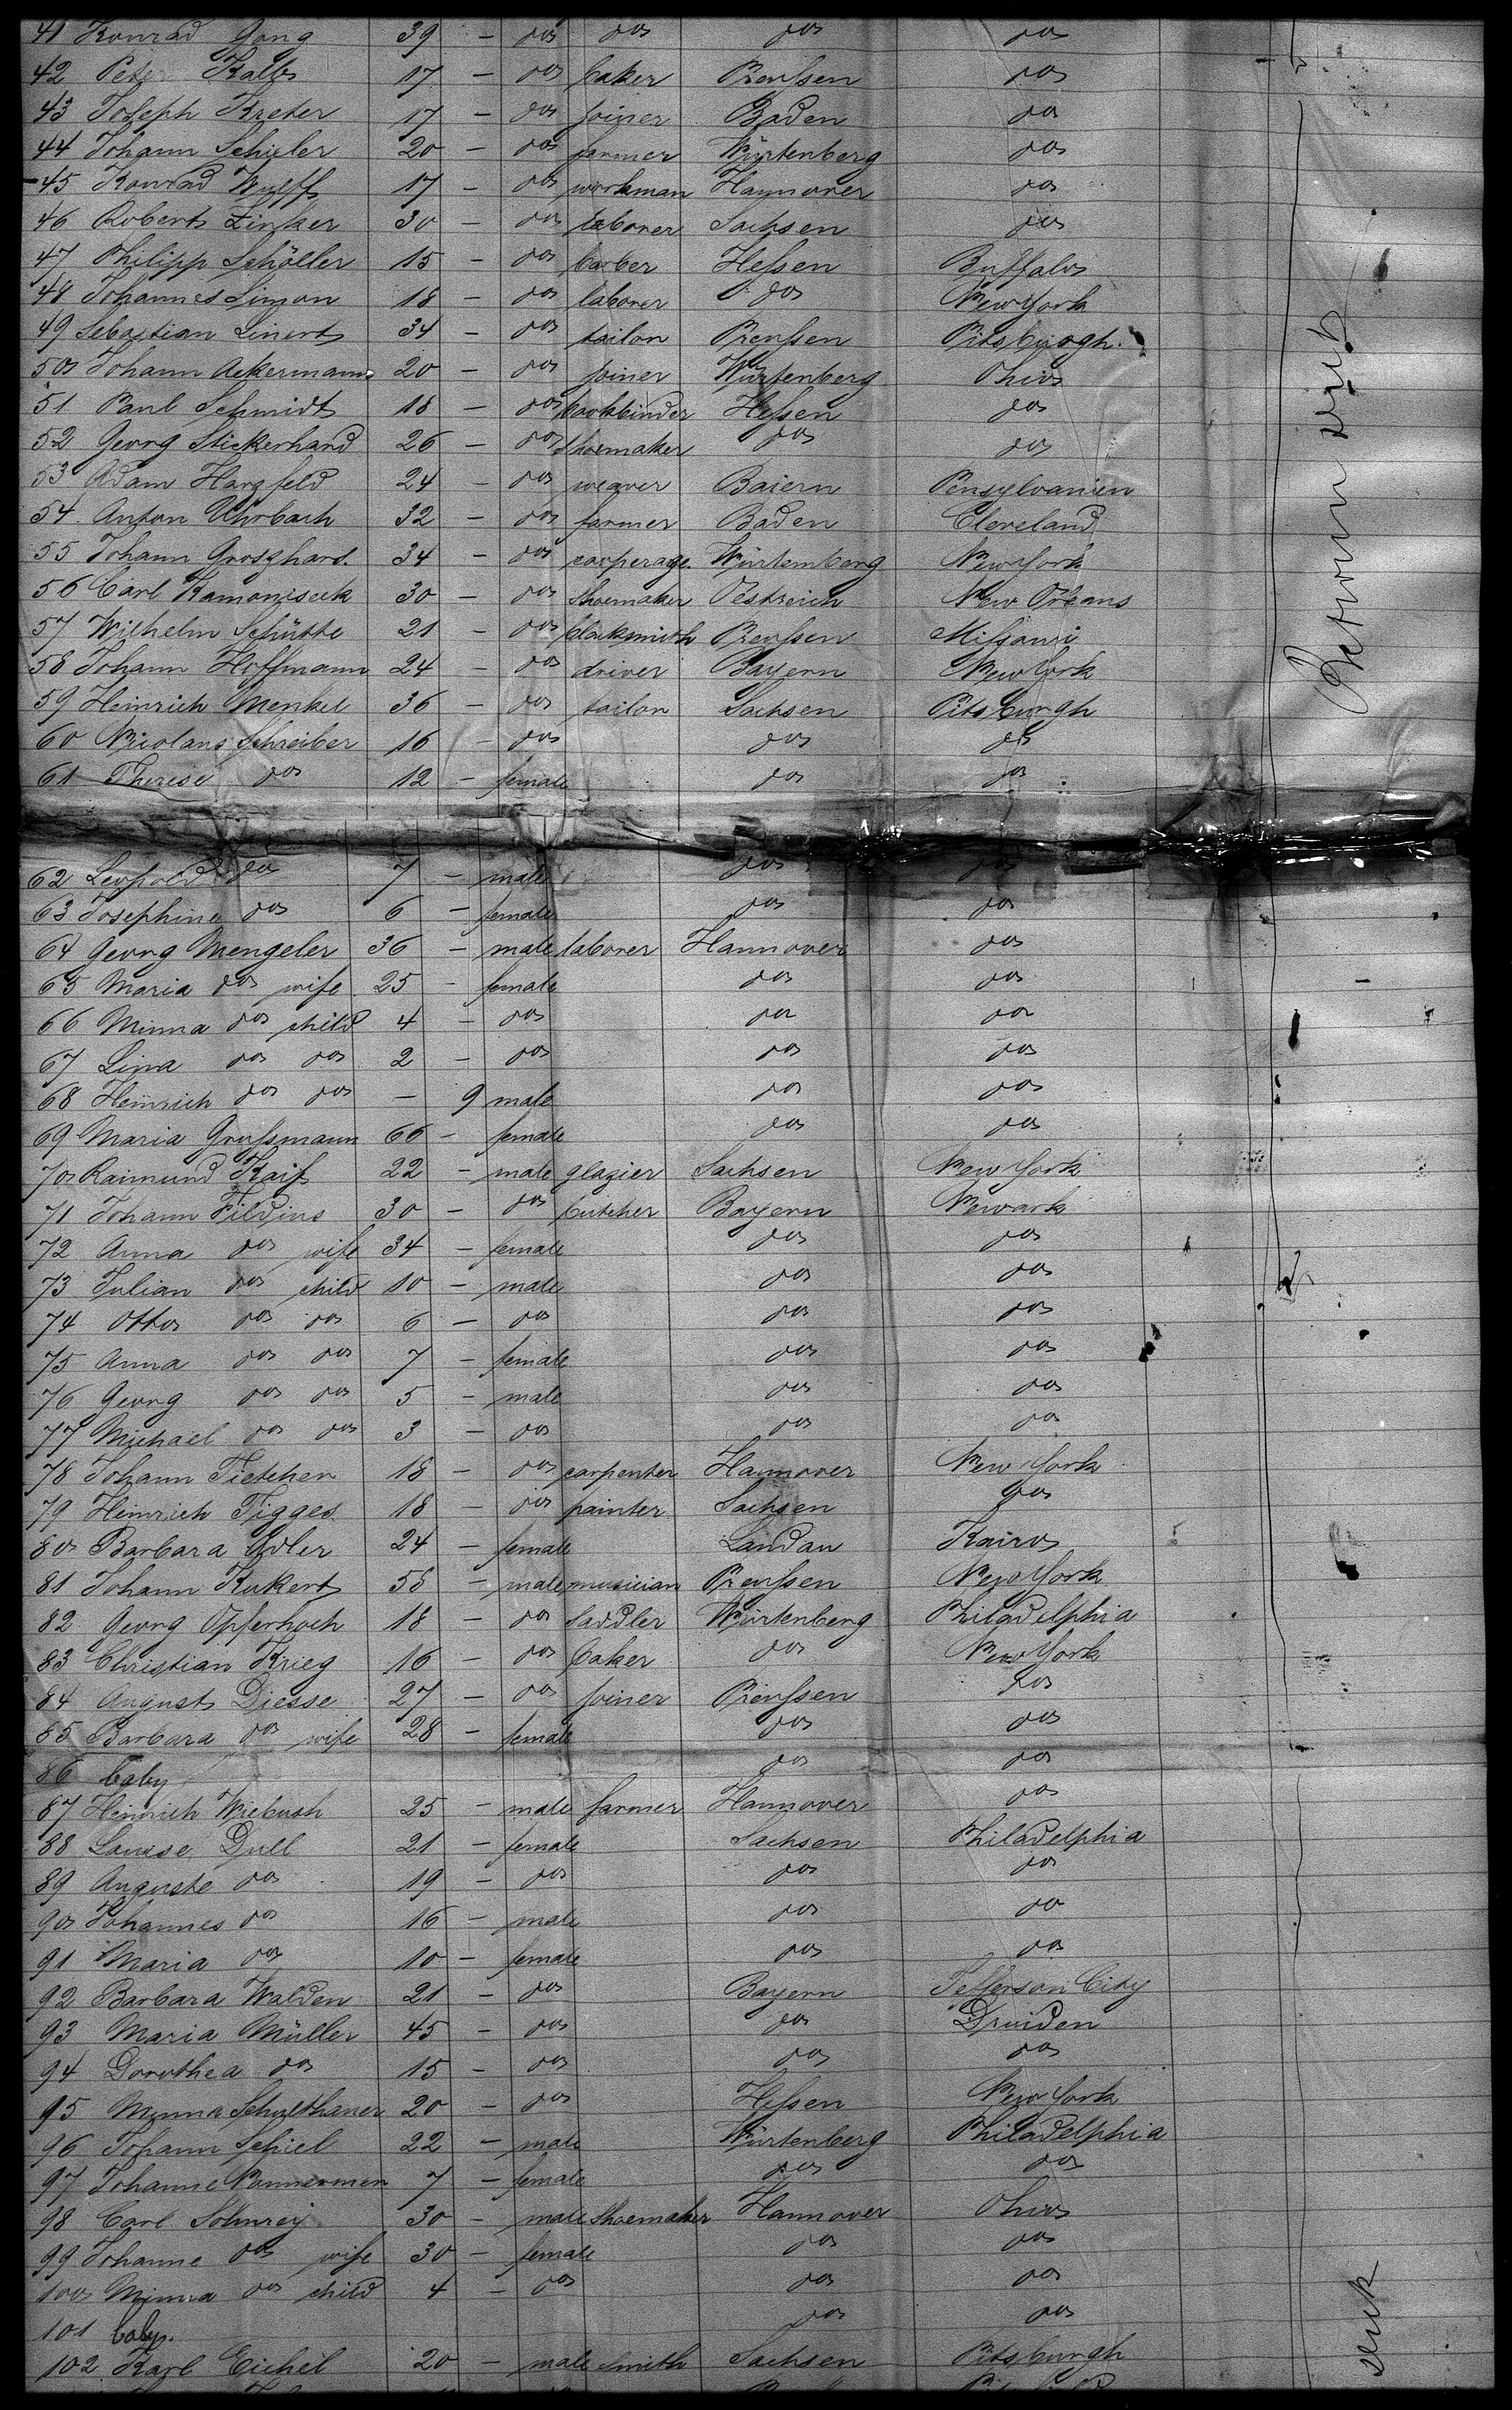 41 Konrad Gong 39 - do do do do
42 Peter Kalb 17 - do baker Preußen do
43 Joseph Kreter 17 - do joiner Baden do
44 Johann Schieler 20 - do farmer Würtenberg do
45 Konrad Wulff 17 - do workman Hannover do
46 Robert Zinker 30 - do laborer Sachsen do
47 Philipp Schöller 15 - do barber Heßen Buffalo
48 Johannes Simon 18 - do laborer do New York
49 Sebastian Linert 34 - do tailor Preußen Pitsburgh.
50 Johann Ackermann 20 - do joiner Würtenberg Ohio
51 Paul Schmidt 18 - do bookbinder Heßen do
52 Georg Stickerhand 26 - do shoemaker do do
53 Adam Harzfeld 24 - do weaver Baiern Pensylvanien
54 Anton Uhrbach 32 - do farmer Baden Cleveland
55 Johann Groszhard. 34 - do cooperage Würtemberg New York
56 Carl Kamoniseck 30 - do shoemaker Oestreich New Orleans
57 Wilhelm Schütte 21 - do blacksmith Preußen Mißouri
58 Johann Hoffmann 24 - do driver Bayern New York
59 Heinrich Menkel 36 - do tailor Sachsen Pitsburgh
60 Nicolaus Schreiber 16 - do do do
61 Therese do 12 - female do do
62 Leopold do 7 - male do do
63 Josephine do 6 - female do do
64 Georg Mengeler 36 - male laborer Hannover do
65 Maria do wife 25 - female do do
66 Minna do child 4 - do do do
67 Lina do do 2 - do do do
68 Heinrich do do - 9 male do do
69 Maria Grußmann 66 - female do do
70 Raimund Kaiß 22 - male glazier Sachsen New York
71 Johann Fildius 30 - do butcher Bayern Newark
72 Anna do wife 34 - female do do
73 Julian do child 10 - male do do
74 Otto do do 6 - do do do
75 Anna do do 7 - female do do
76 Georg do do 5 - male do do
77 Michael do do 3 - do do do
78 Johann Tietchen 18 - do carpenter Hannover New York
79 Heinrich Tigges 18 - do painter Sachsen do
80 Barbara Adler 24 - female Landau Kairo
81 Johann Kukert 58 - male musician Preußen New York
82 Georg Opferkoch 18 - do saddler Würtenberg Philadelphia
83 Christian Krieg 16 - do baker do New York
84 August Diesse 27 - do joiner Preußen do
85 Barbara do wife 28 - female do do
86 baby do do
87 Heinrich Wiebush 25 - male farmer Hannover do
88 Louise Dull 21 - female Sachsen Philadelphia
89 Auguste do 19 - do do do
90 Johannes do 16 - male do do
91 Maria do 10 - female do do
92 Barbara Walden 21 - do Bayern Jefferson City
93 Maria Müller 45 - do do Druiden
94 Dorothea do 15 - do do do
95 Minna Schulthauer 20 - do Heßen New York
96 Johann Schiel 22 - male Würtenberg Philadelphia
97 Johanne Nonnenmen 7 - female do do
98 Carl Sohnrey 30 - male shoemaker Hannover Ohio
99 Johanne do wife 30 - female do do
100 Minna do child 4 - do do do
101 baby. do do
102 Karl Eichel 20 - male smith Sachsen Pitsburgh